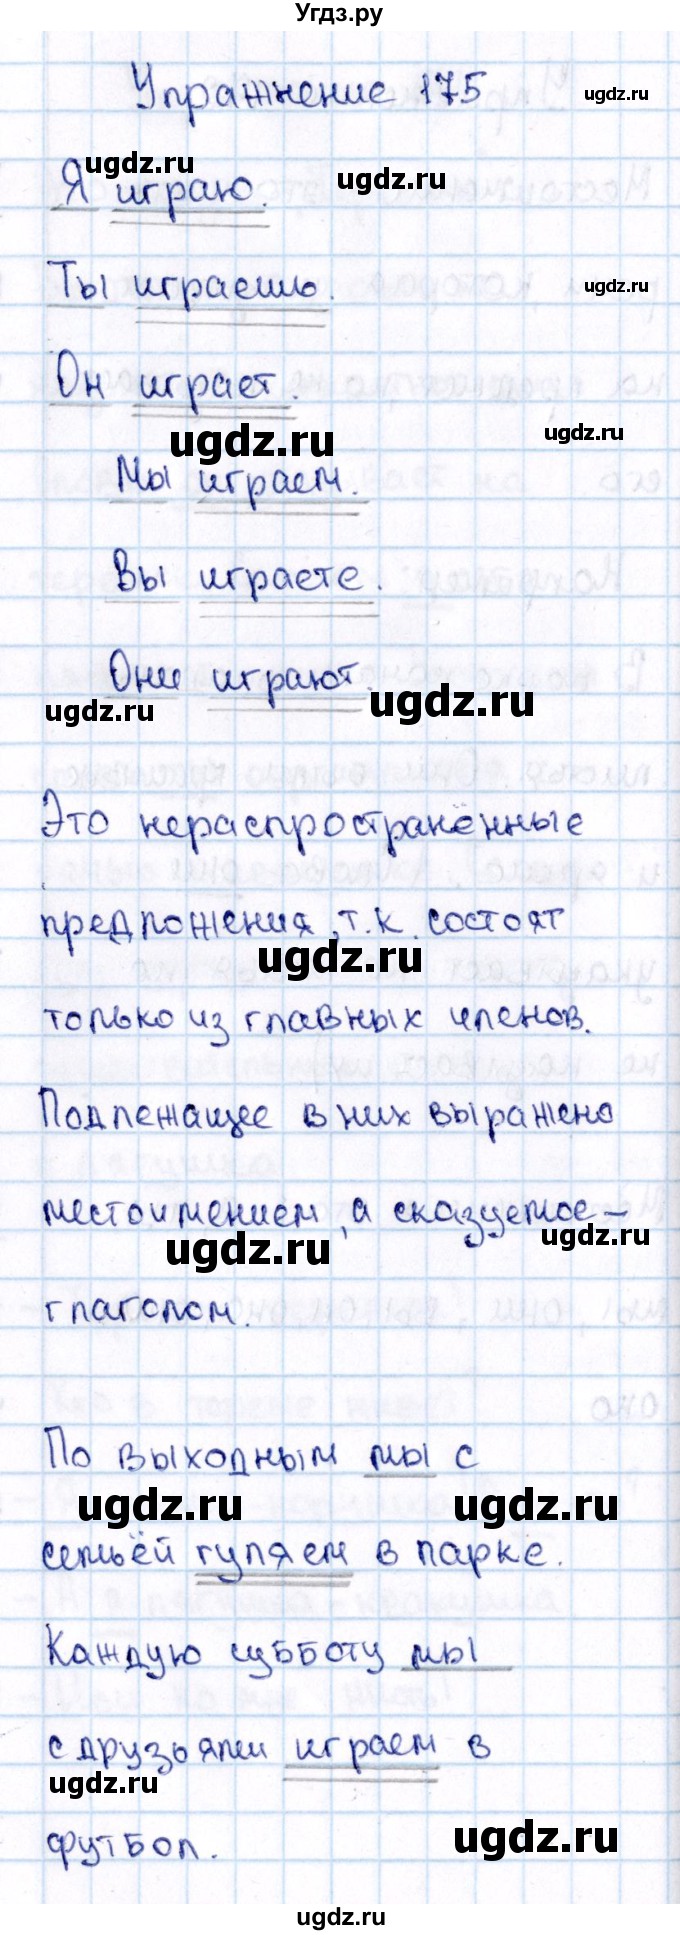 Угдз.ру
Упражнение 175
ugdz.ru
ugdz.ru
ugdz.ru
Я играю.
Ты играешь.
ugdz.ru
Он играет.
ugdz.ru
ugdz.ru
Мы играем.
Вы играете.
Они играют.
ugdz.ru
ugdz.ru
Это нераспространённые
предложения, т.к. состоят
ugdz.ru
только из главных членов.
Подлежащее в них выражено
местоимением, а сказуемое –
ugdz.ru
ugdz.ru
глаголом.
По выходным мы с
ugdz.ru
ugdz.ru
семьёй гуляем в парке.
Каждую субботу мы
с друзьями играем в
ugdz.ru
футбол.
ugdz.ru
ugdz.ru